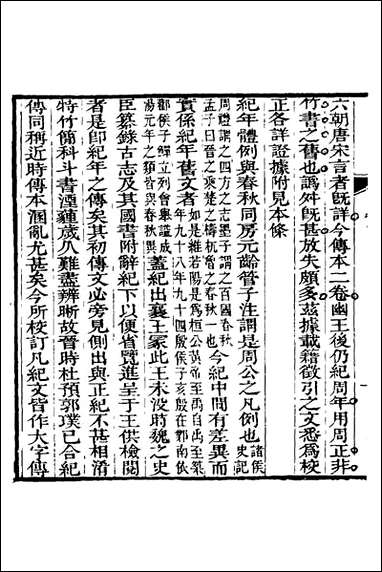 六朝唐宋言者旣詳今傳本二卷幽王後仍紀周年用周正非
竹書之舊也譌舛旣甚放失頗多茲據載籍徵引之文悉爲校
正各詳證據附見本條
紀年體例與春秋同房元齡管子注謂是周公之凡例也
諸侯史記
周禮謂之四方之志墨子謂之百國春秋
孟子曰晉之乘楚之檮杌魯之春秋一也
今紀中間有差異而
實係紀年舊文者
蓋紀出襄王冢此王未沒時魏之史
臣纂錄古志及其國書附辭紀下以便省覽進呈于王供檢閱
者是卽紀年之傳矣其初傳文必旁見側出與正紀不甚相淆
特竹簡科斗書湮薶歲久難盡辨晰故晉時杜預郭璞已合紀
傳同稱近時傳本溷亂尤甚矣今所校訂凡紀文皆作大字傳